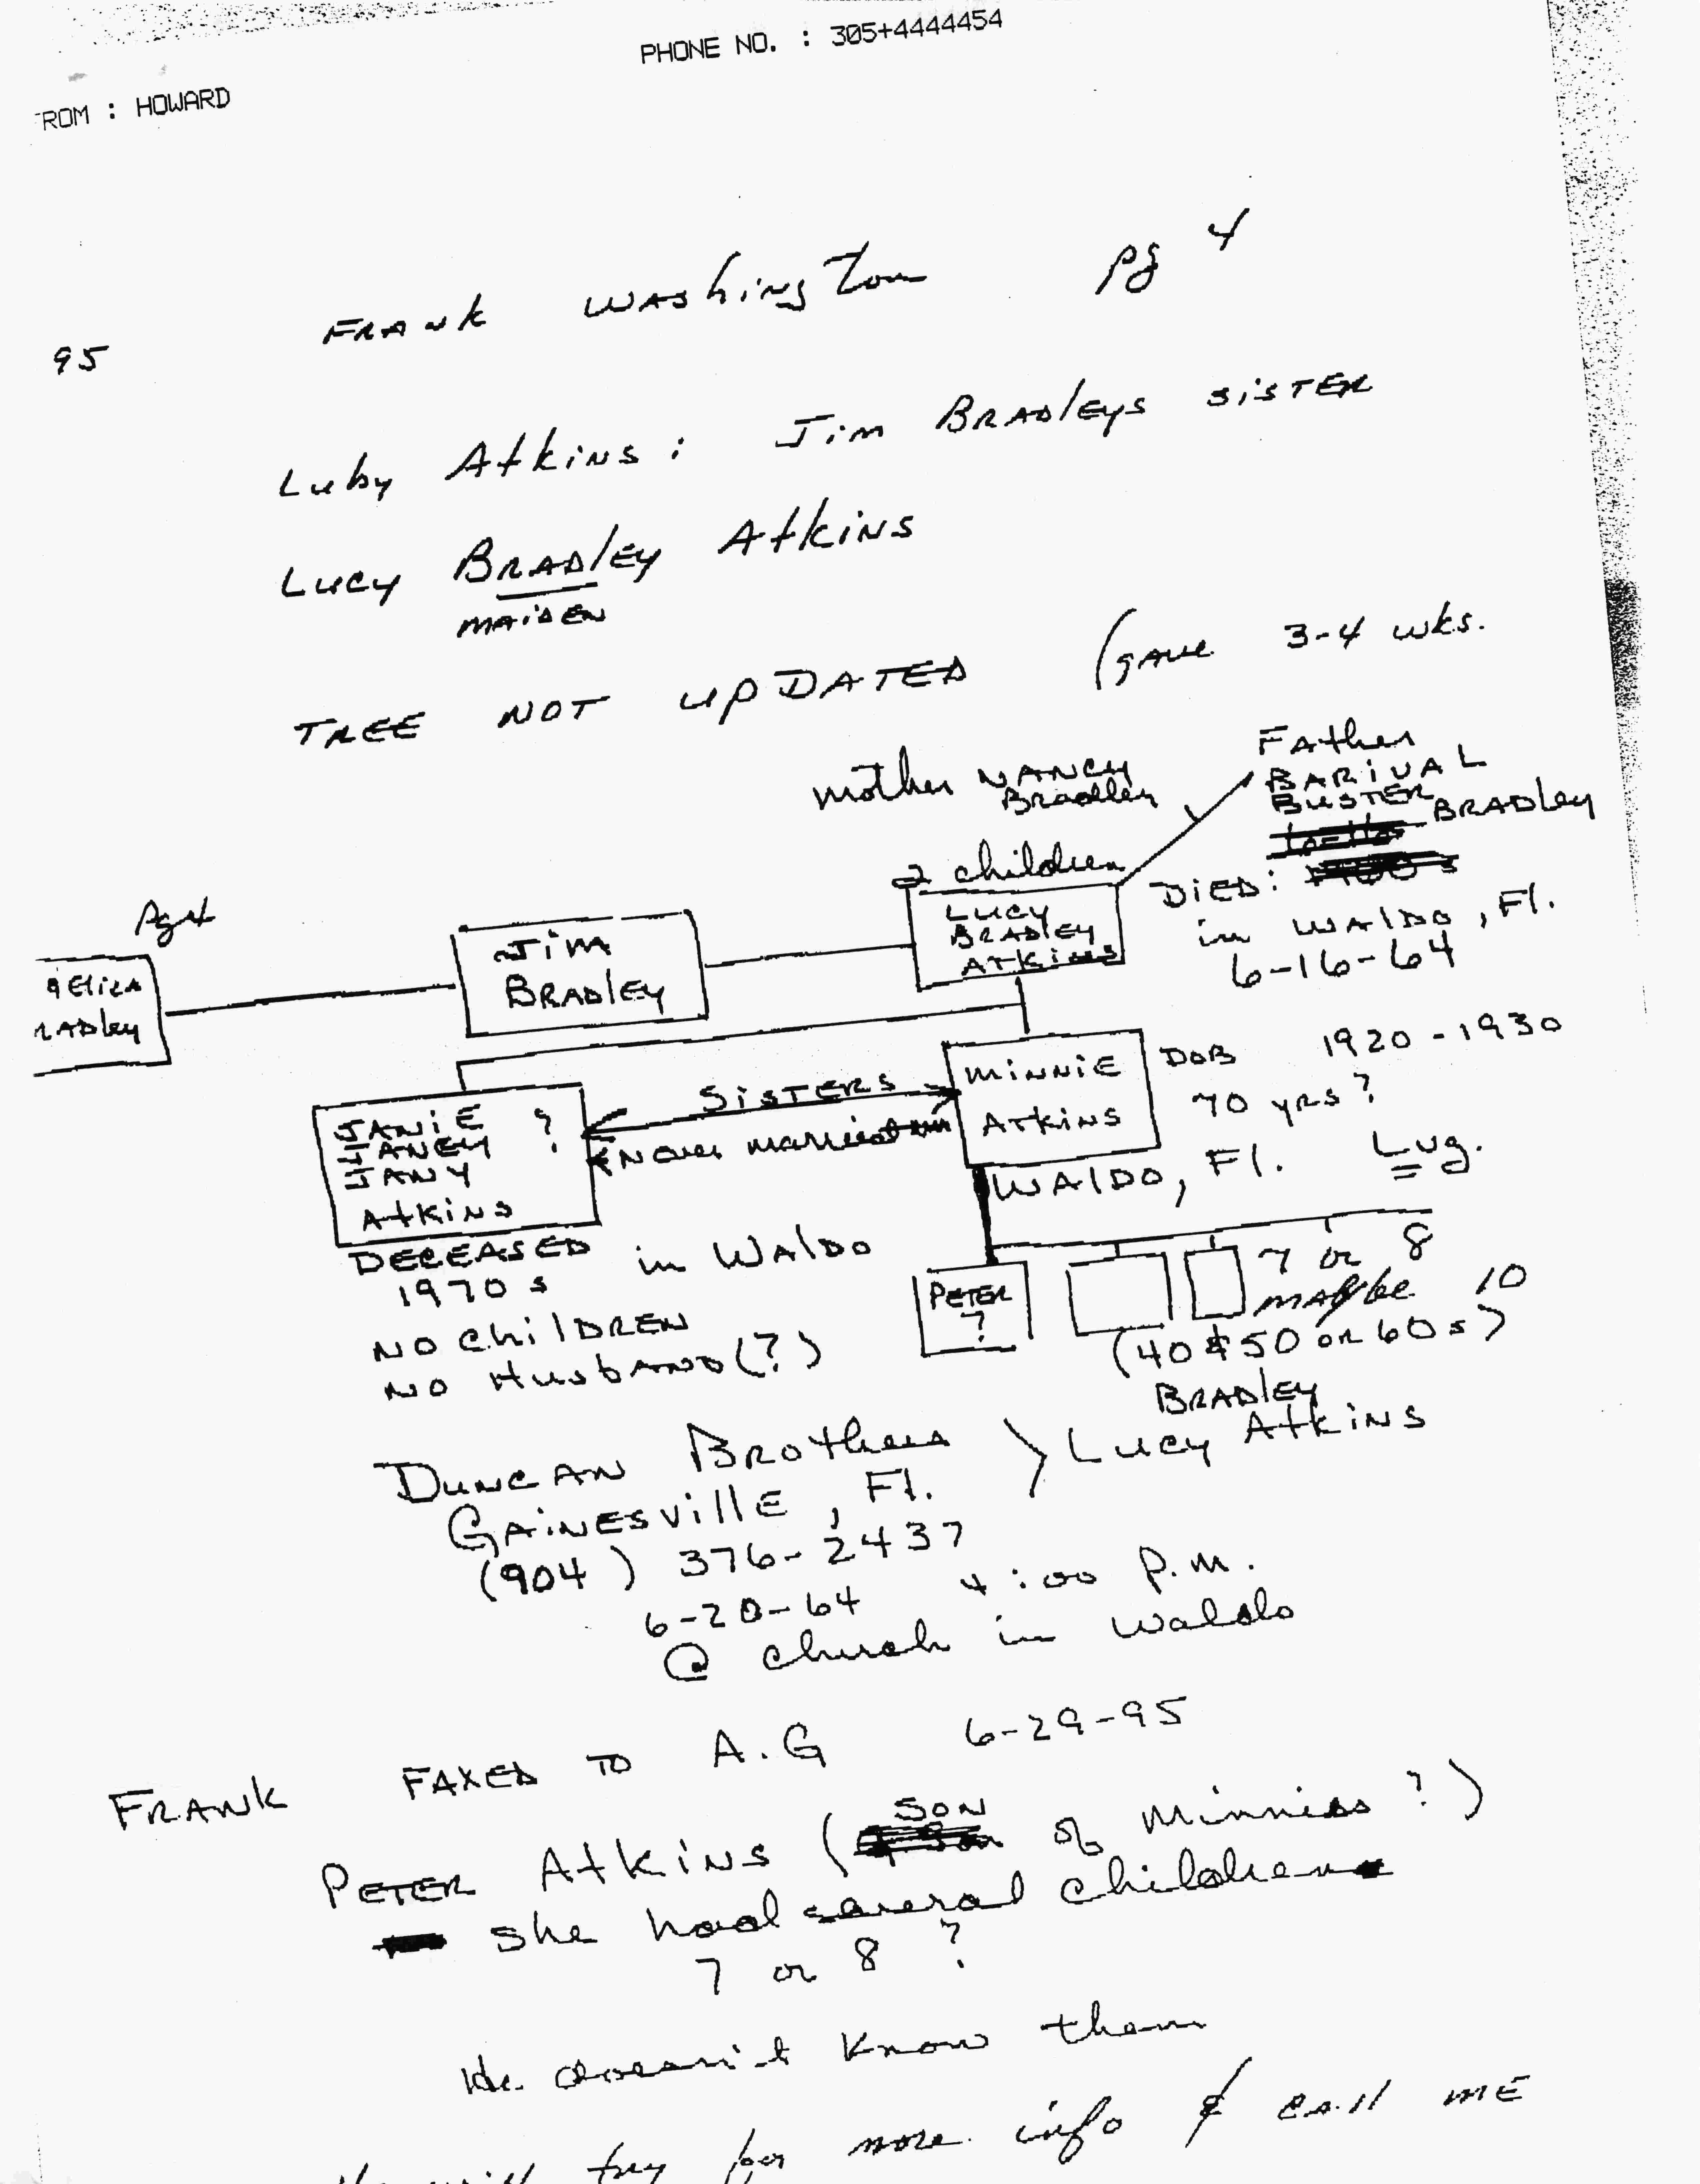 PHONE NO. : 305+4444454
ROM : HOWARD
FRANK Washington pg 4
95
Luby Atkins : Jim BRADleys sisTER
Lucy BRADlEy Atkins
MAiDEN
TREE NOT UPDATED (gave 3-4 wks.
mother NANCY Bradley
FAther
BARIVAL
BUSTER BRADley
2 children
DiED:
in WAlDo, Fl.
6-16-64
Pg 4
& Eliza
RADley
Jim
BRADlEY
LUCY
BRADlEY
ATkins
MiNNiE
AtkiNS
DOB 1920-1930
70 yrs?
SiSTERS
Never married
JANiE ?
JANEY ?
JANY
AtkiNS
WAlDO, Fl. Lvg.
DECEASED in WAlDo
1970s
NO ChilDREN
NO HusbAND(?)
PETER
?
7 or 8
maybe 10
(40 & 50 or 60s)
DUNCAN BRothers > Lucy BRADlEY AtkiNS
GAiNESVillE, Fl.
(904) 376-2437
6-20-64 4:00 P.M.
@ church in Waldo
FRANK FAXED TO A.G 6-29-95
PETER AtkiNS (SON of Minnies?)
she had several children
7 or 8 ?
He doesn't know them
try for more info & call ME